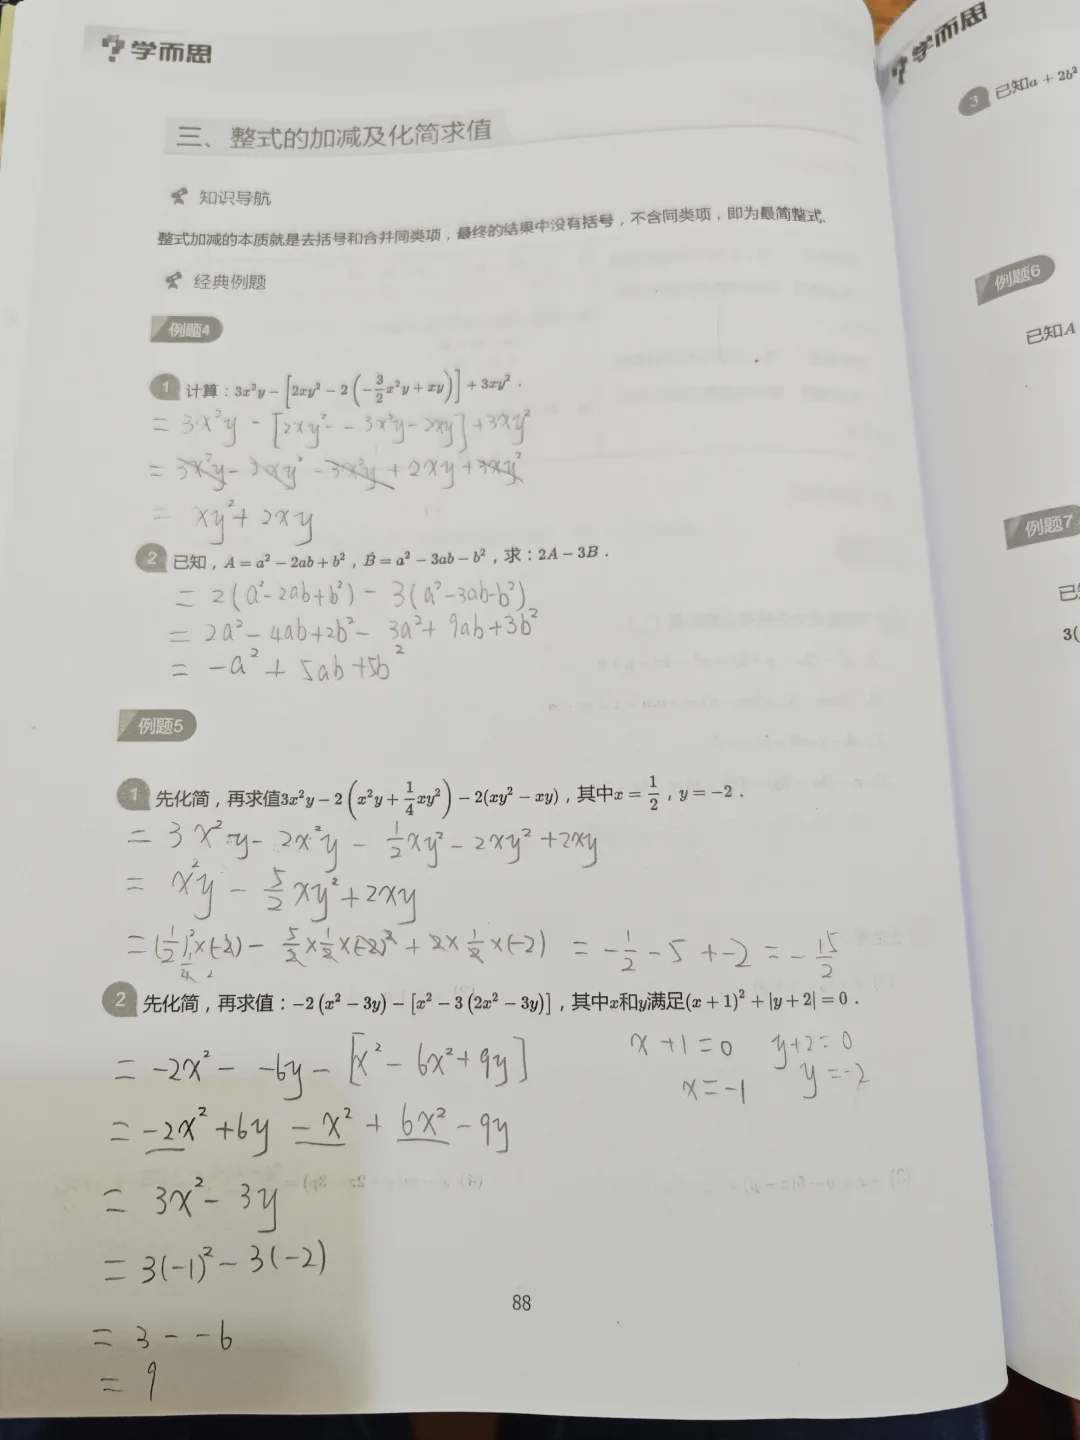 学而思
三、整式的加减及化简求值
知识导航
整式加减的本质就是去括号和合并同类项，最终的结果中没有括号，不含同类项，即为最简整式.
经典例题
例题4
1 计算：3x²y－[2xy²－2(－3/2x²y＋xy)]＋3xy².
= 3x²y - [2xy² - - 3x²y - 2xy] + 3xy²
= 3x²y - 2xy² - 3x²y + 2xy + 3xy²
= xy² + 2xy
2 已知，A＝a²－2ab＋b²，B＝a²－3ab－b²，求：2A－3B.
= 2(a²-2ab+b²) - 3(a²-3ab-b²)
= 2a² - 4ab + 2b² - 3a² + 9ab + 3b²
= -a² + 5ab + 5b²
例题5
1 先化简，再求值3x²y－2(x²y＋1/4xy²)－2(xy²－xy)，其中x＝1/2，y＝－2.
= 3x²y - 2x²y - 1/2xy² - 2xy² + 2xy
= x²y - 5/2xy² + 2xy
= (1/2)²×(-2) - 5/2×1/2×(-2)² + 2×1/2×(-2) = -1/2 - 5 + -2 = -15/2
2 先化简，再求值：－2(x²－3y)－[x²－3(2x²－3y)]，其中x和y满足(x＋1)²＋|y＋2|＝0.
= -2x² - -6y - [x² - 6x² + 9y]
x+1=0 y+2=0
x=-1 y=-2
= -2x² + 6y - x² + 6x² - 9y
= 3x² - 3y
= 3(-1)² - 3(-2)
= 3 - -6
= 9
88
学而思
3 已知a＋2b²
例题6
已知A
例题7
3(